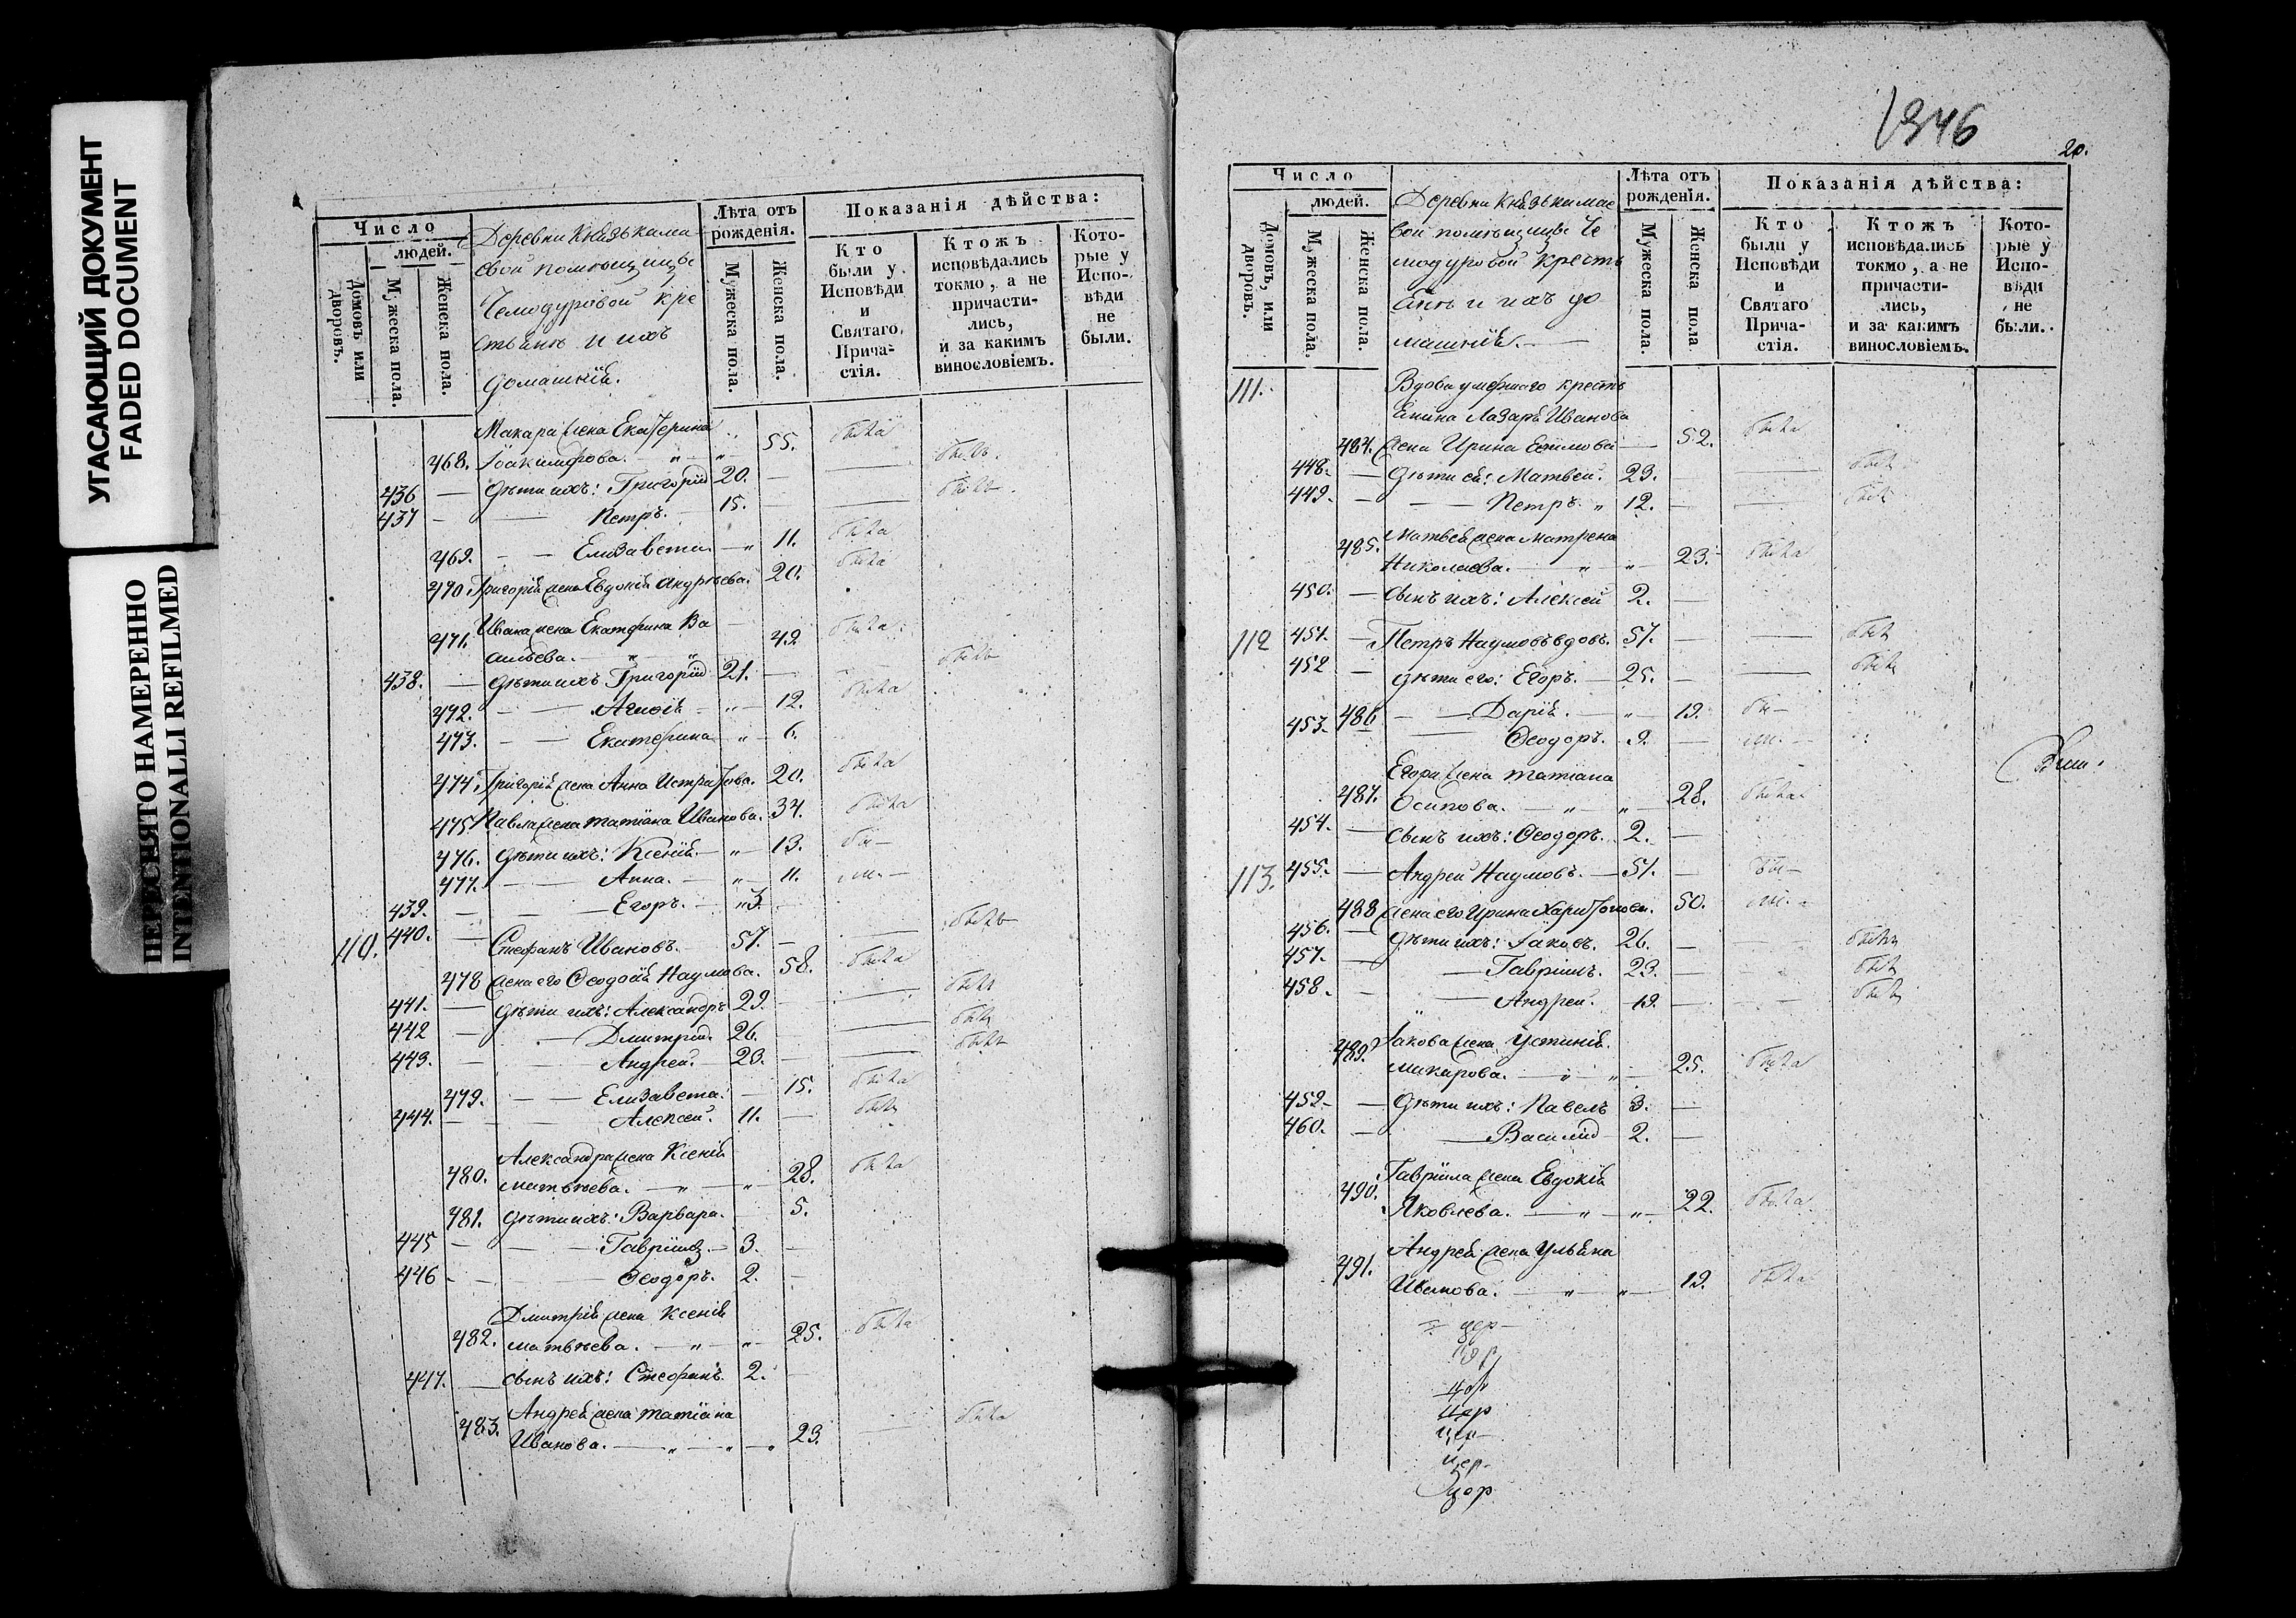 УГАСАЮЩИЙ ДОКУМЕНТ
FADED DOCUMENT
ПЕРЕСНЯТО НАМЕРЕННО
INTENTIONALLI REFILMED
Число
людей.
Домовъ или дворовъ.
Мужеска пола.
Женска пола.
Деревни Князькима
евой помѣщицы
Чемодуровой кре
стьянъ и ихъ
домашнiя.
Лѣта отъ рожденія.
Мужеска пола.
Женска пола.
Показанія дѣйства:
Кто были у Исповѣди и Святаго Прича-стія.
Ктожъ исповѣдались токмо, а не причасти-лись, и за какимъ винословіемъ.
Кото-рые у Испо-вѣди не были.
Макара жена Екатерина
468. Іоакимова. 55. была
436 — дѣти ихъ: Григорій 20. — былъ
437 — Петръ. 15. — былъ
469. — Елизавета. 11. была
470. Григорія жена Евдокія Андрѣева. 20. была
Ивана жена Екатерина Ва
471. сильева. 42 была
438. — дѣти ихъ Григорій 21. — былъ
472. — Агафія 12. была
473. — Екатерина 6.
474. Григорія жена Анна Истратова. 20. была
475 Павла жена Татіана Иванова. 34. была
476. дѣти ихъ: Ксенія. 13. бы-
477. — Анна. 11. ли. —
439. — Егоръ. 3.
110. 440. — Стефанъ Ивановъ. 57. — былъ
478 жена его Ѳеодосія Наумова. 58. была
441. — дѣти ихъ: Александръ 29. — былъ
442 — Дмитрій. 26. — былъ
443. — Андрей. 23. — былъ
479. — Елизавета. 15. была
444. — Алексѣй. 11. — былъ
Александра жена Ксенія
480. матвѣева. 28. была
481. дѣти ихъ: Варвара. 5.
445 — Гавріилъ. 3. —
446 — Ѳеодоръ. 2. —
Дмитрія жена Ксенія
482. матвѣева. 25. была
447. — сынъ ихъ: Стефанъ. 2. —
Андрея жена Татіана
483. Иванова. 23. — была
1346
20.
Число
людей.
Домовъ, или дворовъ.
Мужеска пола.
Женска пола.
Деревни Князькимае
вой помѣщицы Че
модуровой кресть
янъ и ихъ до
машнія.
Лѣта отъ рожденія.
Мужеска пола.
Женска пола.
Показанія дѣйства:
Кто были у Исповѣди и Святаго Прича-стія.
Ктожъ исповѣдались токмо, а не причасти-лись, и за какимъ винословіемъ.
Кото-рые у Испо-вѣди не были.
111. Вдова умершаго кресть
янина Лазаря Иванова
484. жена Ирина Ефимова 52. была
448. — дѣти ея: Матвей. 23. — былъ
449. — Петръ. 12. — былъ
Матвея жена Матрена
485. Николаева. 23. была
450. — сынъ ихъ: Алексей 2. —
112 451. — Петръ Наумовъ вдовъ. 57. — былъ
452 — дѣти его: Егоръ. 25. — былъ
486 — Дарія. 19. бы-
453. — Ѳеодоръ. 9. — ли. —
Егора жена Татіана
487. Осипова. 28. была
454. — сынъ ихъ: Ѳеодоръ. 2. —
113. 455. — Андрей Наумовъ. 51. — бы-
488 жена его Ирина Харитонова. 50. ли. —
456. — дѣти ихъ: Іаковъ. 26. — былъ
457. — Гавріилъ. 23. — былъ
458. — Андрей. 19. — былъ
Іакова жена Устинія
489. макарова. 25. была
459. — дѣти ихъ: Павелъ 3. —
460. — Василій 2. —
Гавріила жена Евдокія
490. Яковлева. 22. была
Андрея жена Ульяна
491. Иванова. 19. была
цер-
цер
цер
цер-
цер-
цер